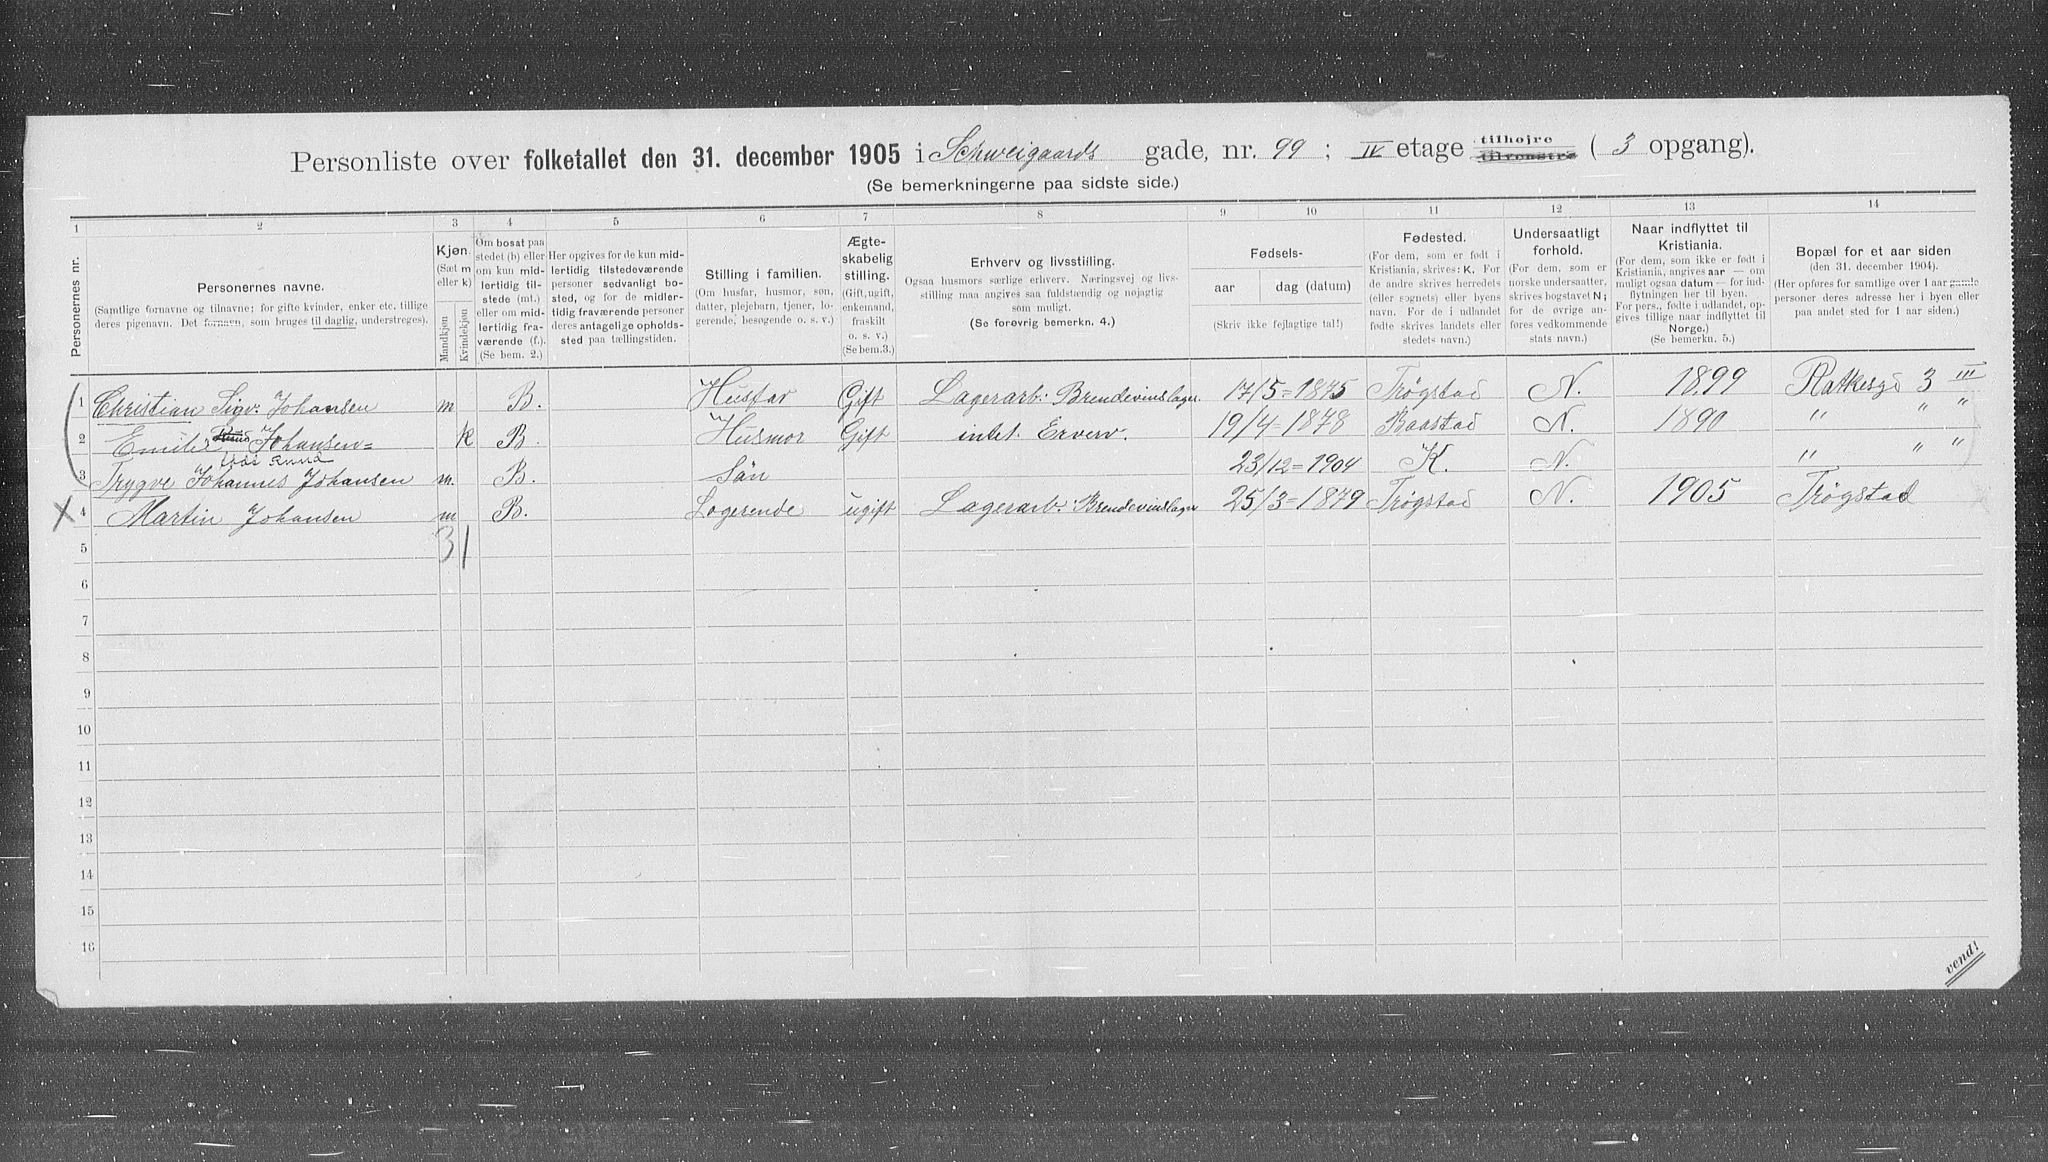 Personliste over folketallet den 31. december 1905 i Schweigaards gade, nr. 99 ; IV etage tilhøjre tilvenstre ( 3 opgang).
(Se bemerkningerne paa sidste side.)
1 2 3 4 5 6 7 8 9 10 11 12 13 14
Personernes nr.
Personernes navne.
(Samtlige fornavne og tilnavne; for gifte kvinder, enker etc. tillige
deres pigenavn. Det fornavn, som bruges til daglig, understreges).
Kjøn.
(Sæt m
eller k)
Mandkjøn
Kvindekjøn
Om bosat paa
stedet (b) eller
om kun mid-
lertidig til-
stede (mt.)
eller om mid-
lertidig fra-
værende (f.).
(Se bem. 2.)
Her opgives for de kun mid-
lertidig tilstedeværende
personer sedvanligt bo-
sted, og for de midler-
tidig fraværende personer
deres antagelige opholds-
sted paa tællingstiden.
Stilling i familien.
(Om husfar, husmor, søn,
datter, plejebarn, tjener, lo-
gerende, besøgende o. s. v.)
Ægte-
skabelig
stilling.
(Gift, ugift,
enkemand,
fraskilt
o. s. v.)
(Se bem.3.)
Erhverv og livsstilling.
Ogsaa husmors særlige erhverv. Næringsvej og livs-
stilling maa angives saa fuldstændig og nøjagtig
som muligt.
(Se forøvrig bemerkn. 4.)
Fødsels-
aar dag (datum)
(Skriv ikke fejlagtige tal!)
Fødested.
(For dem, som er født i
Kristiania, skrives: K. For
de andre skrives herredets
(eller sognets) eller byens
navn. For de i udlandet
fødte skrives landets eller
stedets navn.)
Undersaatligt
forhold.
(For dem, som er
norske undersaatter,
skrives bogstavet N;
for de øvrige an-
føres vedkommende
stats navn.)
Naar indflyttet til
Kristiania.
(For dem, som ikke er født i
Kristiania, angives aar — om
muligt ogsaa datum — for ind-
flytningen her til byen.
For pers., fødte i udlandet, op-
gives tillige naar indflyttet til
Norge.)
(Se bemerkn. 5.)
Bopæl for et aar siden
(den 31. december 1904).
(Her opføres for samtlige over 1 aar gamle
personer deres adresse her i byen eller
paa andet sted for 1 aar siden.)
1 Christian Sigv. Johansen m B. Husfar Gift Lagerarb: Brendevinslager. 17/5=1875 Trøgstad N. 1899 Ratkesgd 3 III
2 Emilie Johansen= k B. Husmor Gift intet Erverv. 19/4=1878 Baastad N. 1890 " " "
3 Trygve Johannes Johansen m. B. Søn 23/12=1904 K. N. " " "
4 Martin Johansen m B. Logerende ugift Lagerarb: Brendevinslager 25/3=1879 Trøgstad N. 1905 Trøgstad
5 3 1
6
7
8
9
10
11
12
13
14
15
16
vend!